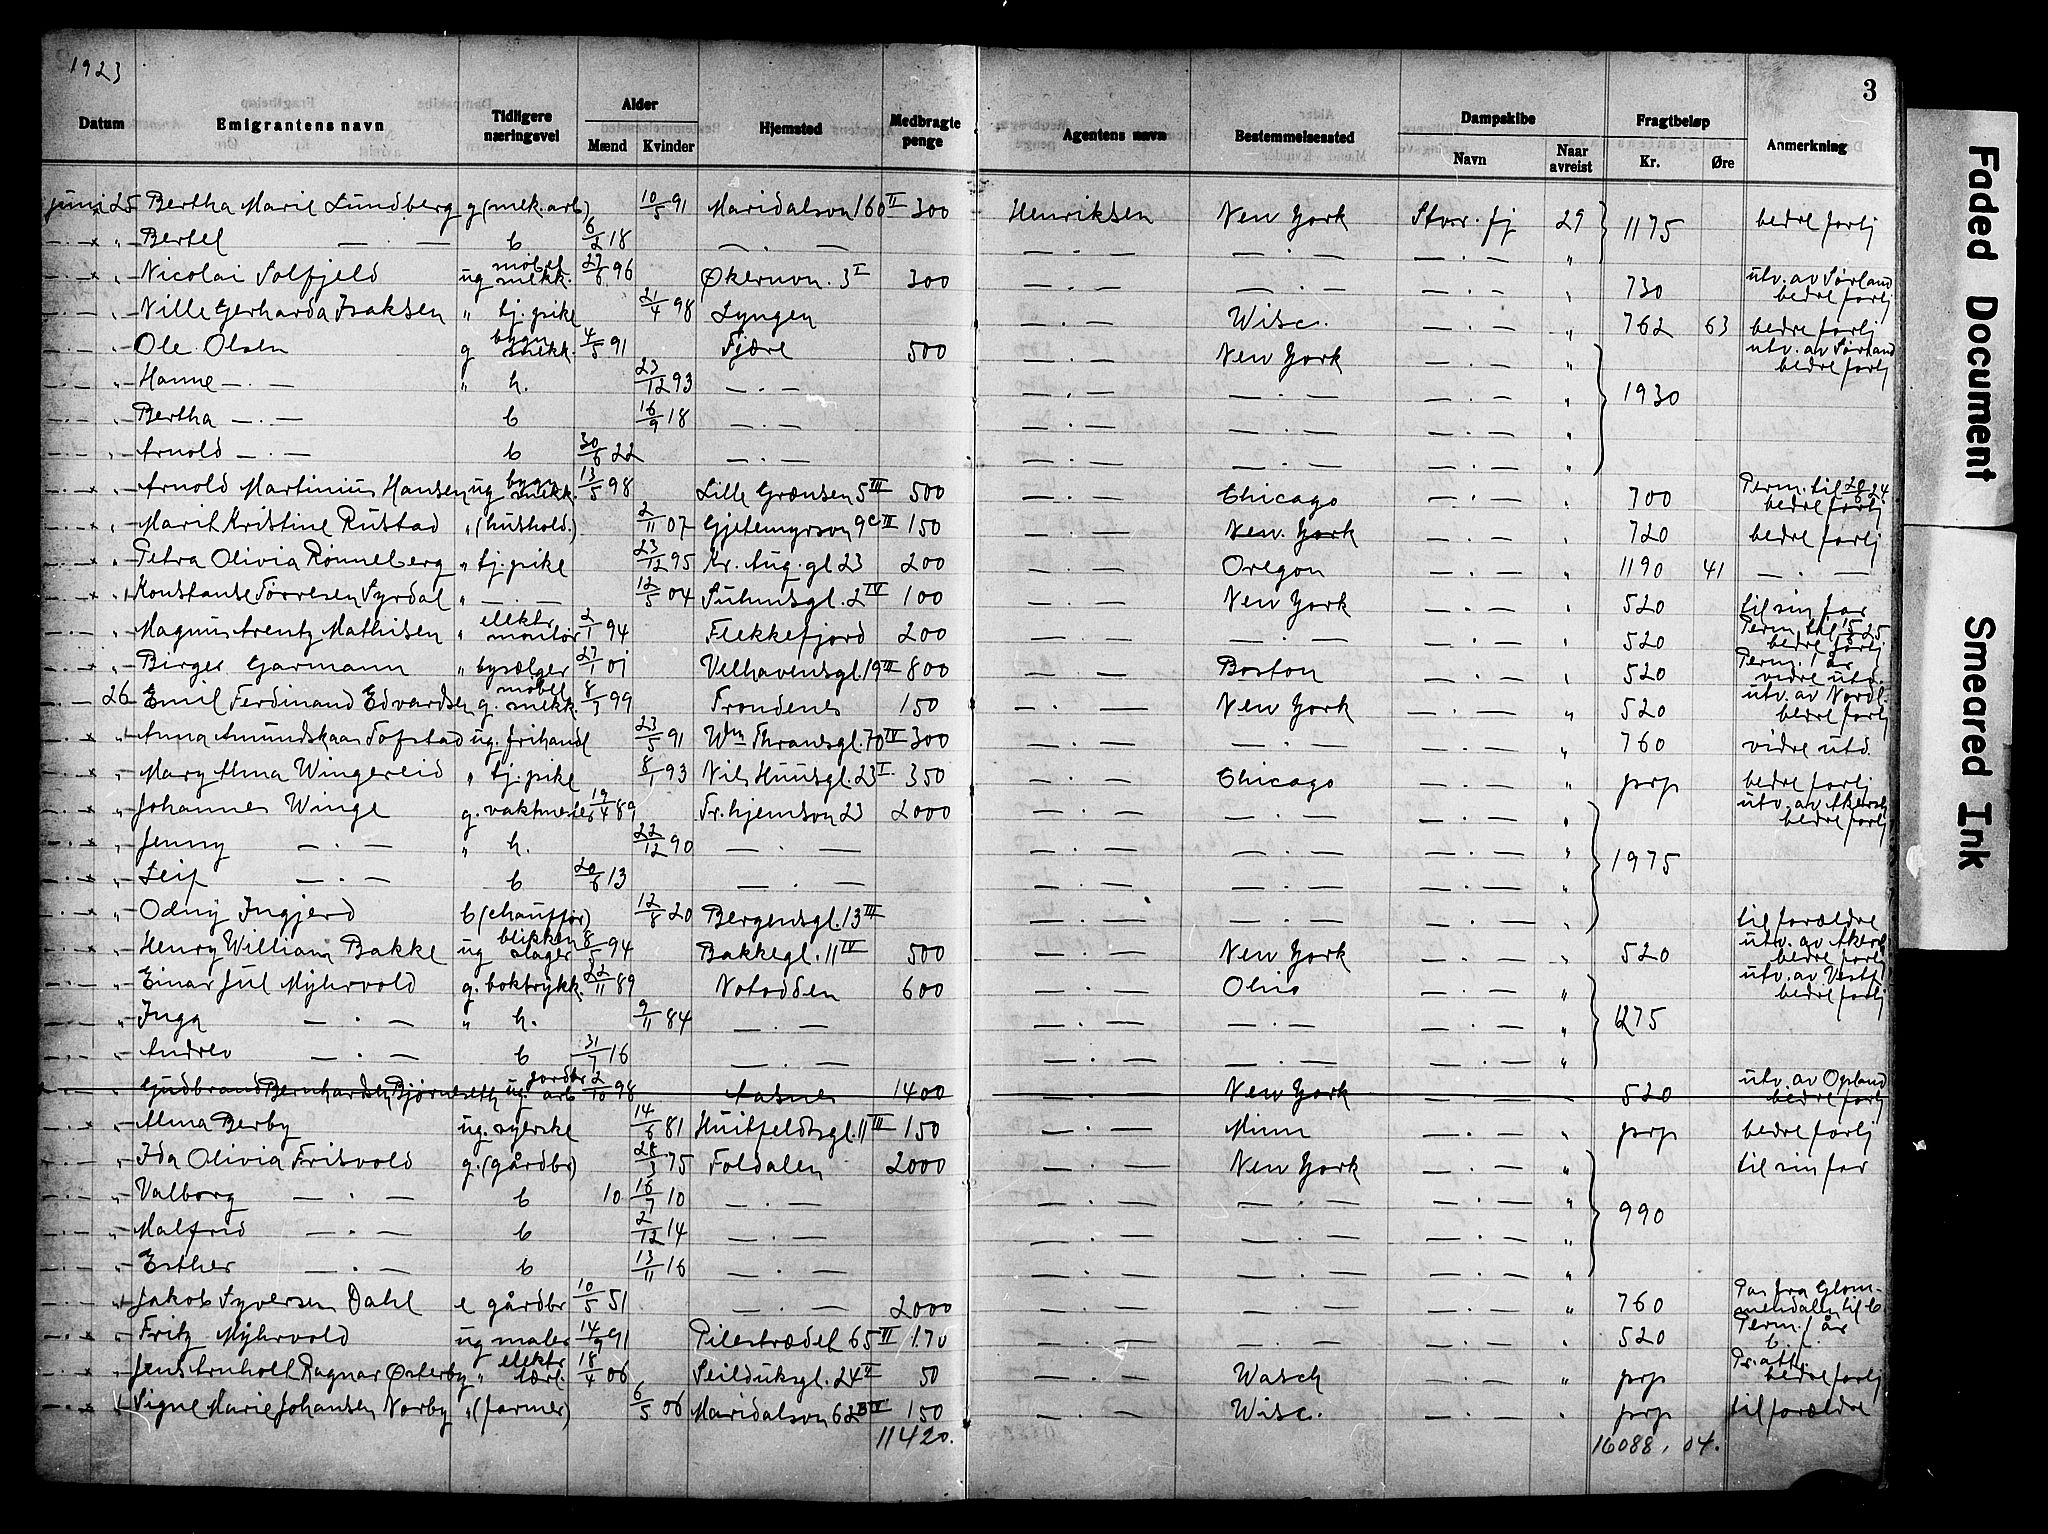 1923
3
Datum Emigrantens navn Tidligere næringsvei Alder Mænd Kvinder Hjemsted Medbragte penge Agentens navn Bestemmelsessted Dampskibe Navn Naar avreist Fragtbeløp Kr. Øre Anmerkning
juni 25 Bertha Marie Lundberg g (mek. arb) 10/5 91 Maridalsvn 160 II 300 Henriksen New York Stvr. fj 29 1175 bedre forlj
" Bertel — · — b 6/2 18 — · — — · — — · — — · — "
" Nicolai Solfjeld ug møbel snekk. 23/6 96 Økernvn. 3 I 300 — · — — · — — · — " 730 utv. av Sørland bedre forlj
" Nille Gerharda Isaksen " tj. pike 21/4 98 Lyngen — · — Wisc. — · — " 762 63 bedre forlj
" Ole Olsen g bygn snekk. 4/5 91 Fjære 500 — · — New York — · — " utv. av Sørland bedre forlj
" Hanne — · — " h. 23/12 93 — · — — · — — · — — · — " 1930
" Bertha — · — b 16/9 18 — · — — · — — · — — · — "
" Arnold — · — b 30/6 22 — · — — · — — · — — · — "
" Arnold Martinius Hansen ug bygn snekk. 13/5 98 Lille Grænsen 5 III 500 — · — Chicago — · — " 700 Perm. til 24 bedre forlj
" Marit Kristine Rustad " (hushold.) 2/11 07 Gjetemyrsvn 9c II 150 — · — New York — · — " 720 bedre forlj
" Petra Olivia Rønneberg " tj. pike 23/12 95 Kr. Aug. gt 23 200 — · — Oregon — · — " 1190 41 — · —
" Konstanse Torresen Syrdal " — · — 12/5 04 Suhmsgt. 2 IV 100 — · — New York — · — " 520 til sin far
" Magnus Arentz Mathisen " elektr montør 2/1 94 Flekkefjord 200 — · — — · — — · — " 520 Perm. til 25 bedre forlj
" Birger Garmann " bysælger 27/1 01 Velhavensgt. 19 III 800 — · — Boston — · — " 520 Perm. 1 år vidre utd.
26 Emil Ferdinand Edvardsen g. møbel snekk. 8/3 99 Trondenes 150 — · — New York — · — " 520 utv. av Nordl. bedre forlj
" Anna Amundskaas Tofstad ug. frihandl 23/5 91 Wm Thranesgt. 70 IV 300 — · — — · — — · — " 760 vidre utd.
" Mary Alma Wingereid " tj. pike 8/1 93 Nils Huusgt. 23 I. 350 — · — Chicago — · — " prp bedre forlj
" Johannes Winge g. vaktmester 19/4 89 Fr. hjemsvn 23 2000 — · — — · — — · — " utv. av Akersh bedre forlj
" Jenny — · — " h. 22/12 90 — · — — · — — · — — · — " 1975
" Leif — · — b 20/6 13 — · — — · — — · — — · — "
" Odny Ingjerd b (chauffør) 12/8 20 Bergensgt. 13 III — · — — · — — · — " til forældre
" Henry William Bakke ug blikken slager 8/5 94 Bakkegt. 11 IV 500 — · — New York — · — " 520 utv. av Akersh bedre forlj
" Einar Jul Myhrvold g. boktrykk. 22/11 89 Notodden 600 — · — Ohio — · — " utv. av Vestf. bedre forlj
" Inga — · — " h. 9/11 84 — · — — · — — · — — · — " 1275
" Andrev — · — b 31/7 16 — · — — · — — · — — · — "
" Gudbrand Bernhardsen Bjørneseth ug. jordbr arb 2/10 98 Aasnes 1400 — · — New York — · — " 520 utv. av Opland bedre forlj
" Alma Berby ug. syerske 14/6 81 Huitfeldtsgt. 11 III 150 — · — Minn — · — " prp bedre forlj
" Ida Olivia Frisvold g. (gårdbr) 3 75 Foldalen 2000 — · — New York — · — " til sin far
" Valborg — · — b 10 16/7 10 — · — — · — — · — — · — "
" Malfrid — · — b 2/12 14 — · — — · — — · — — · — " 990
" Esther — · — b 13/11 16 — · — — · — — · — — · — "
" Jakob Syversen Dahl e gårdbr 10/5 51 — · — 2000 — · — — · — — · — " 760 Pas fra Glommendalen til b
" Fritz Myhrvold ug maler 14/9 91 Pilestrædet 65 III 170 — · — — · — — · — " 520 Perm. 1 år b. f.
" Jens Arnholt Ragnar Østerby " elektr lærl. 18/4 06 Seilduksgt. 24 II 50 — · — Wasch — · — " prp Pr. att. bedre forlj
" Signe Marie Johansen Norby " (farmer) 6/5 06 Maridalsvn 62B IV 150 — · — Wisc. — · — " prp til forældre
11420. 16088, 04.
Faded Document
Smeared Ink